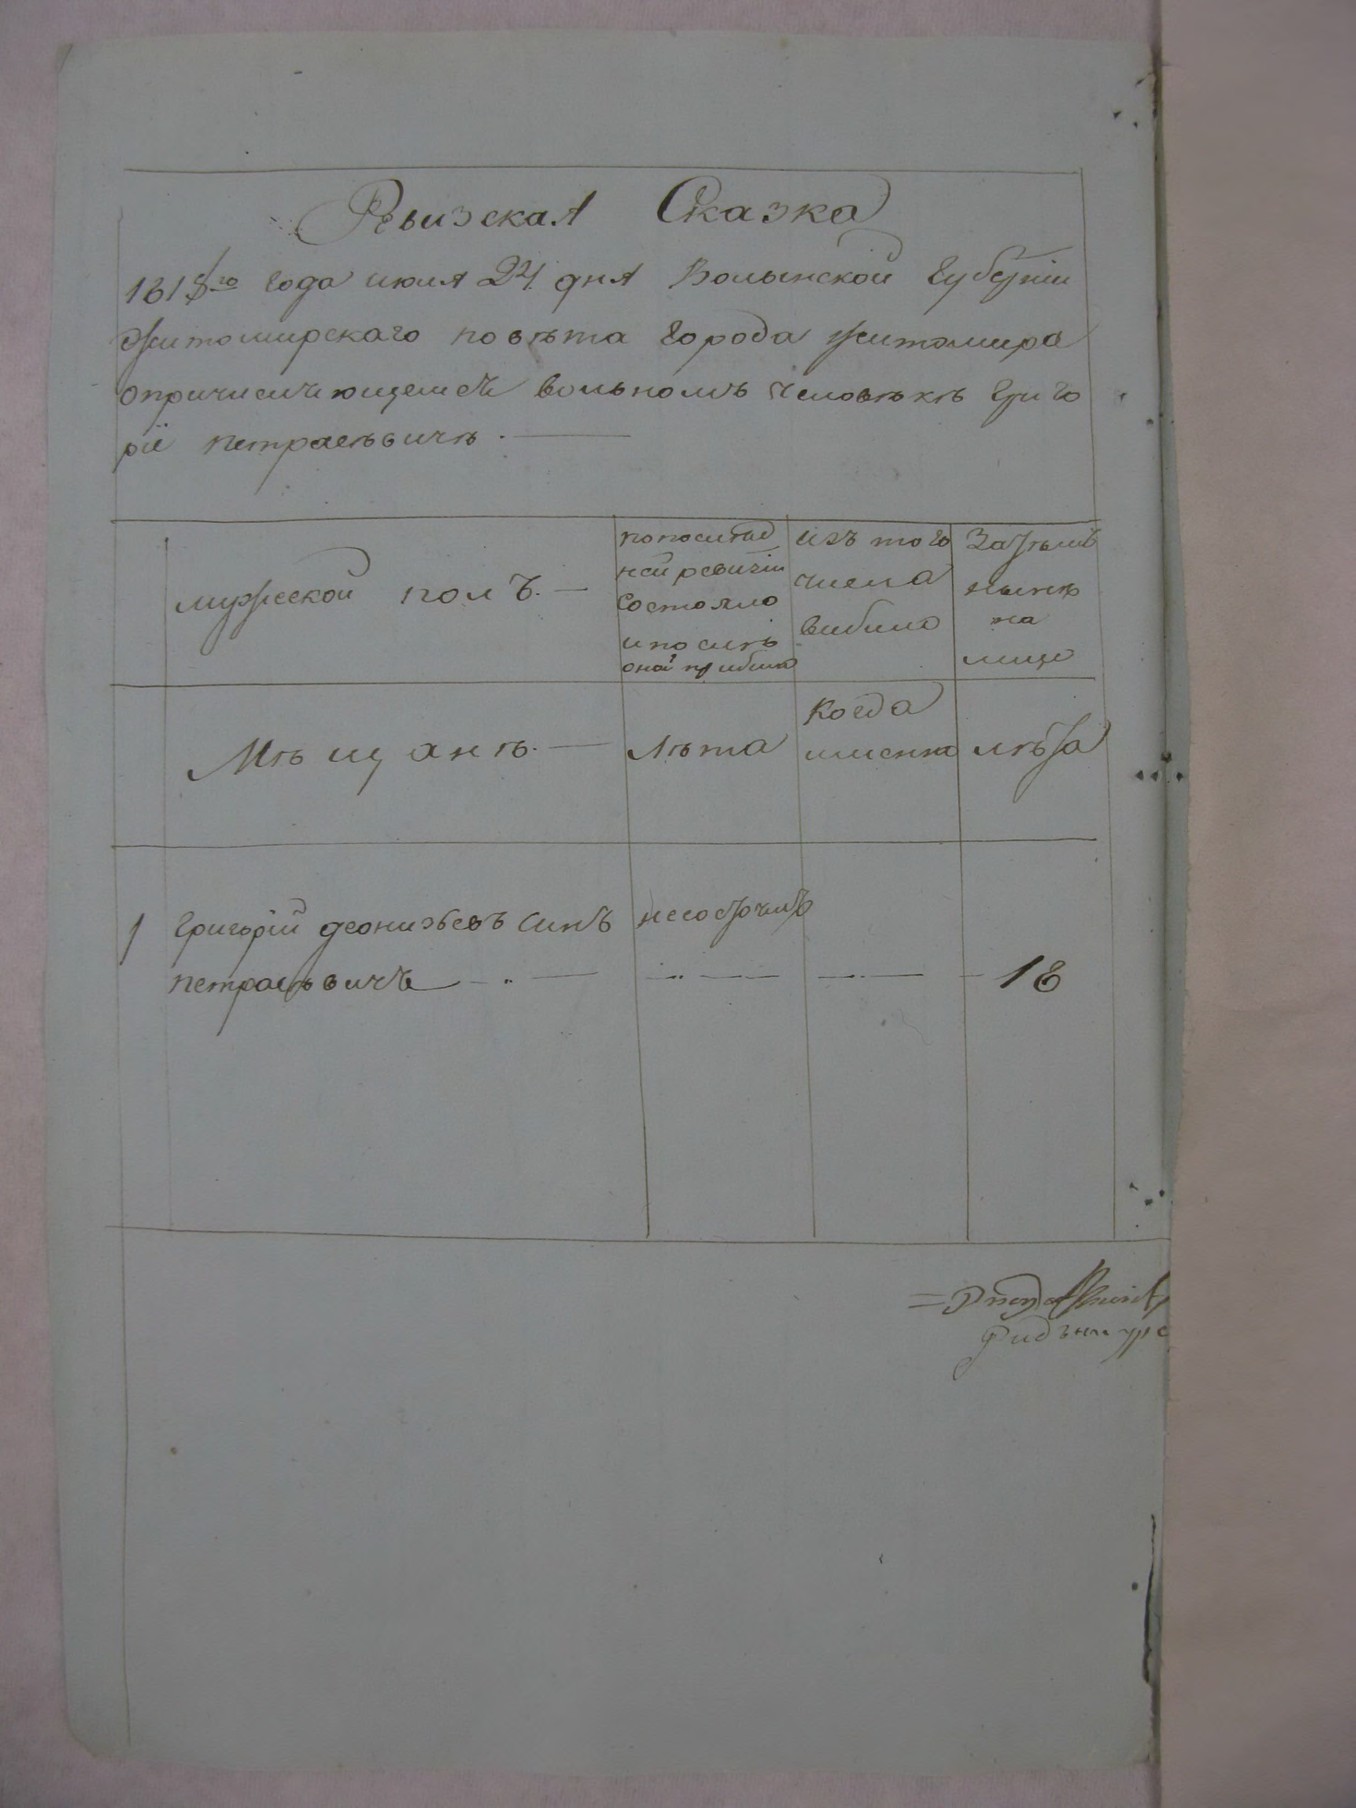 Рѣвизская Сказка
1818го года июля 24 дня Волынской Губерніи
Житомирского повѣта города Житомира
опричисляющемся вольномъ человѣкѣ Григо
рiе Петрасѣвичѣ.
мужеской полъ.
попослѣд
ней ревизіи
состояло
и послѣ
оной прибыло
изъ того
числа
выбыло
Затѣмъ
нынѣ
на
лицо
Мѣщанѣ.
лѣта
когда
именно
лѣта
1 Григорій Деонизьевъ синъ
Петрасѣвичъ
несосточилъ
18